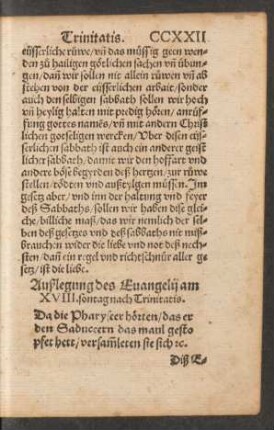 Trinitatis. CCXXII
eüsserliche rüwe/ vñ das müssig geen wen
den zů hailigen götlichen sachen vñ übun
gen/ dañ wir sollen nit allein rüwen vñ ab
stehen von der eüsserlichen arbait/ sonder
auch den selbigen sabbath sollen wir hoch
vñ heylig halten mit predig hören/ anrüf/
fung gottes namēs/ vñ mit andern Christ
lichen gotseligen wercken/ Vber disen eüs
serlichen sabbath ist auch ein anderer geist
licher sabbath/ damit wir den hoffart und
andere böse begyrden deß hertzen/ zur růw
stellen/ tödten und außtylgen müssen. Im
gesetz aber/ und inn der haltung und feyer
deß Sabbaths/ sollen wir haben dise glei/
che/ billiche maß/ das wir nemlich der sel/
ben deß gesetzes und deß sabbaths nit miß/
brauchen wider die liebe und not deß nech/
sten/ dañ ein regel und richtschnůr aller ge
setz/ ist die liebe.
Außlegung des Euangelij am
XVIII. sontag nach Trinitatis.
Da die Pharyseer hörten/ das er
den Saduceern das maul gesto
pfet hett/ versamleten sie sich ꝛc.
Diß E-